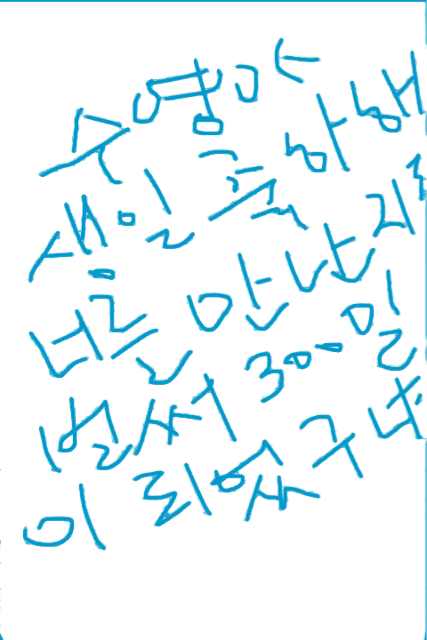 수영아
생일축하해
너를 만난지
벌써 300일
이 되었구나